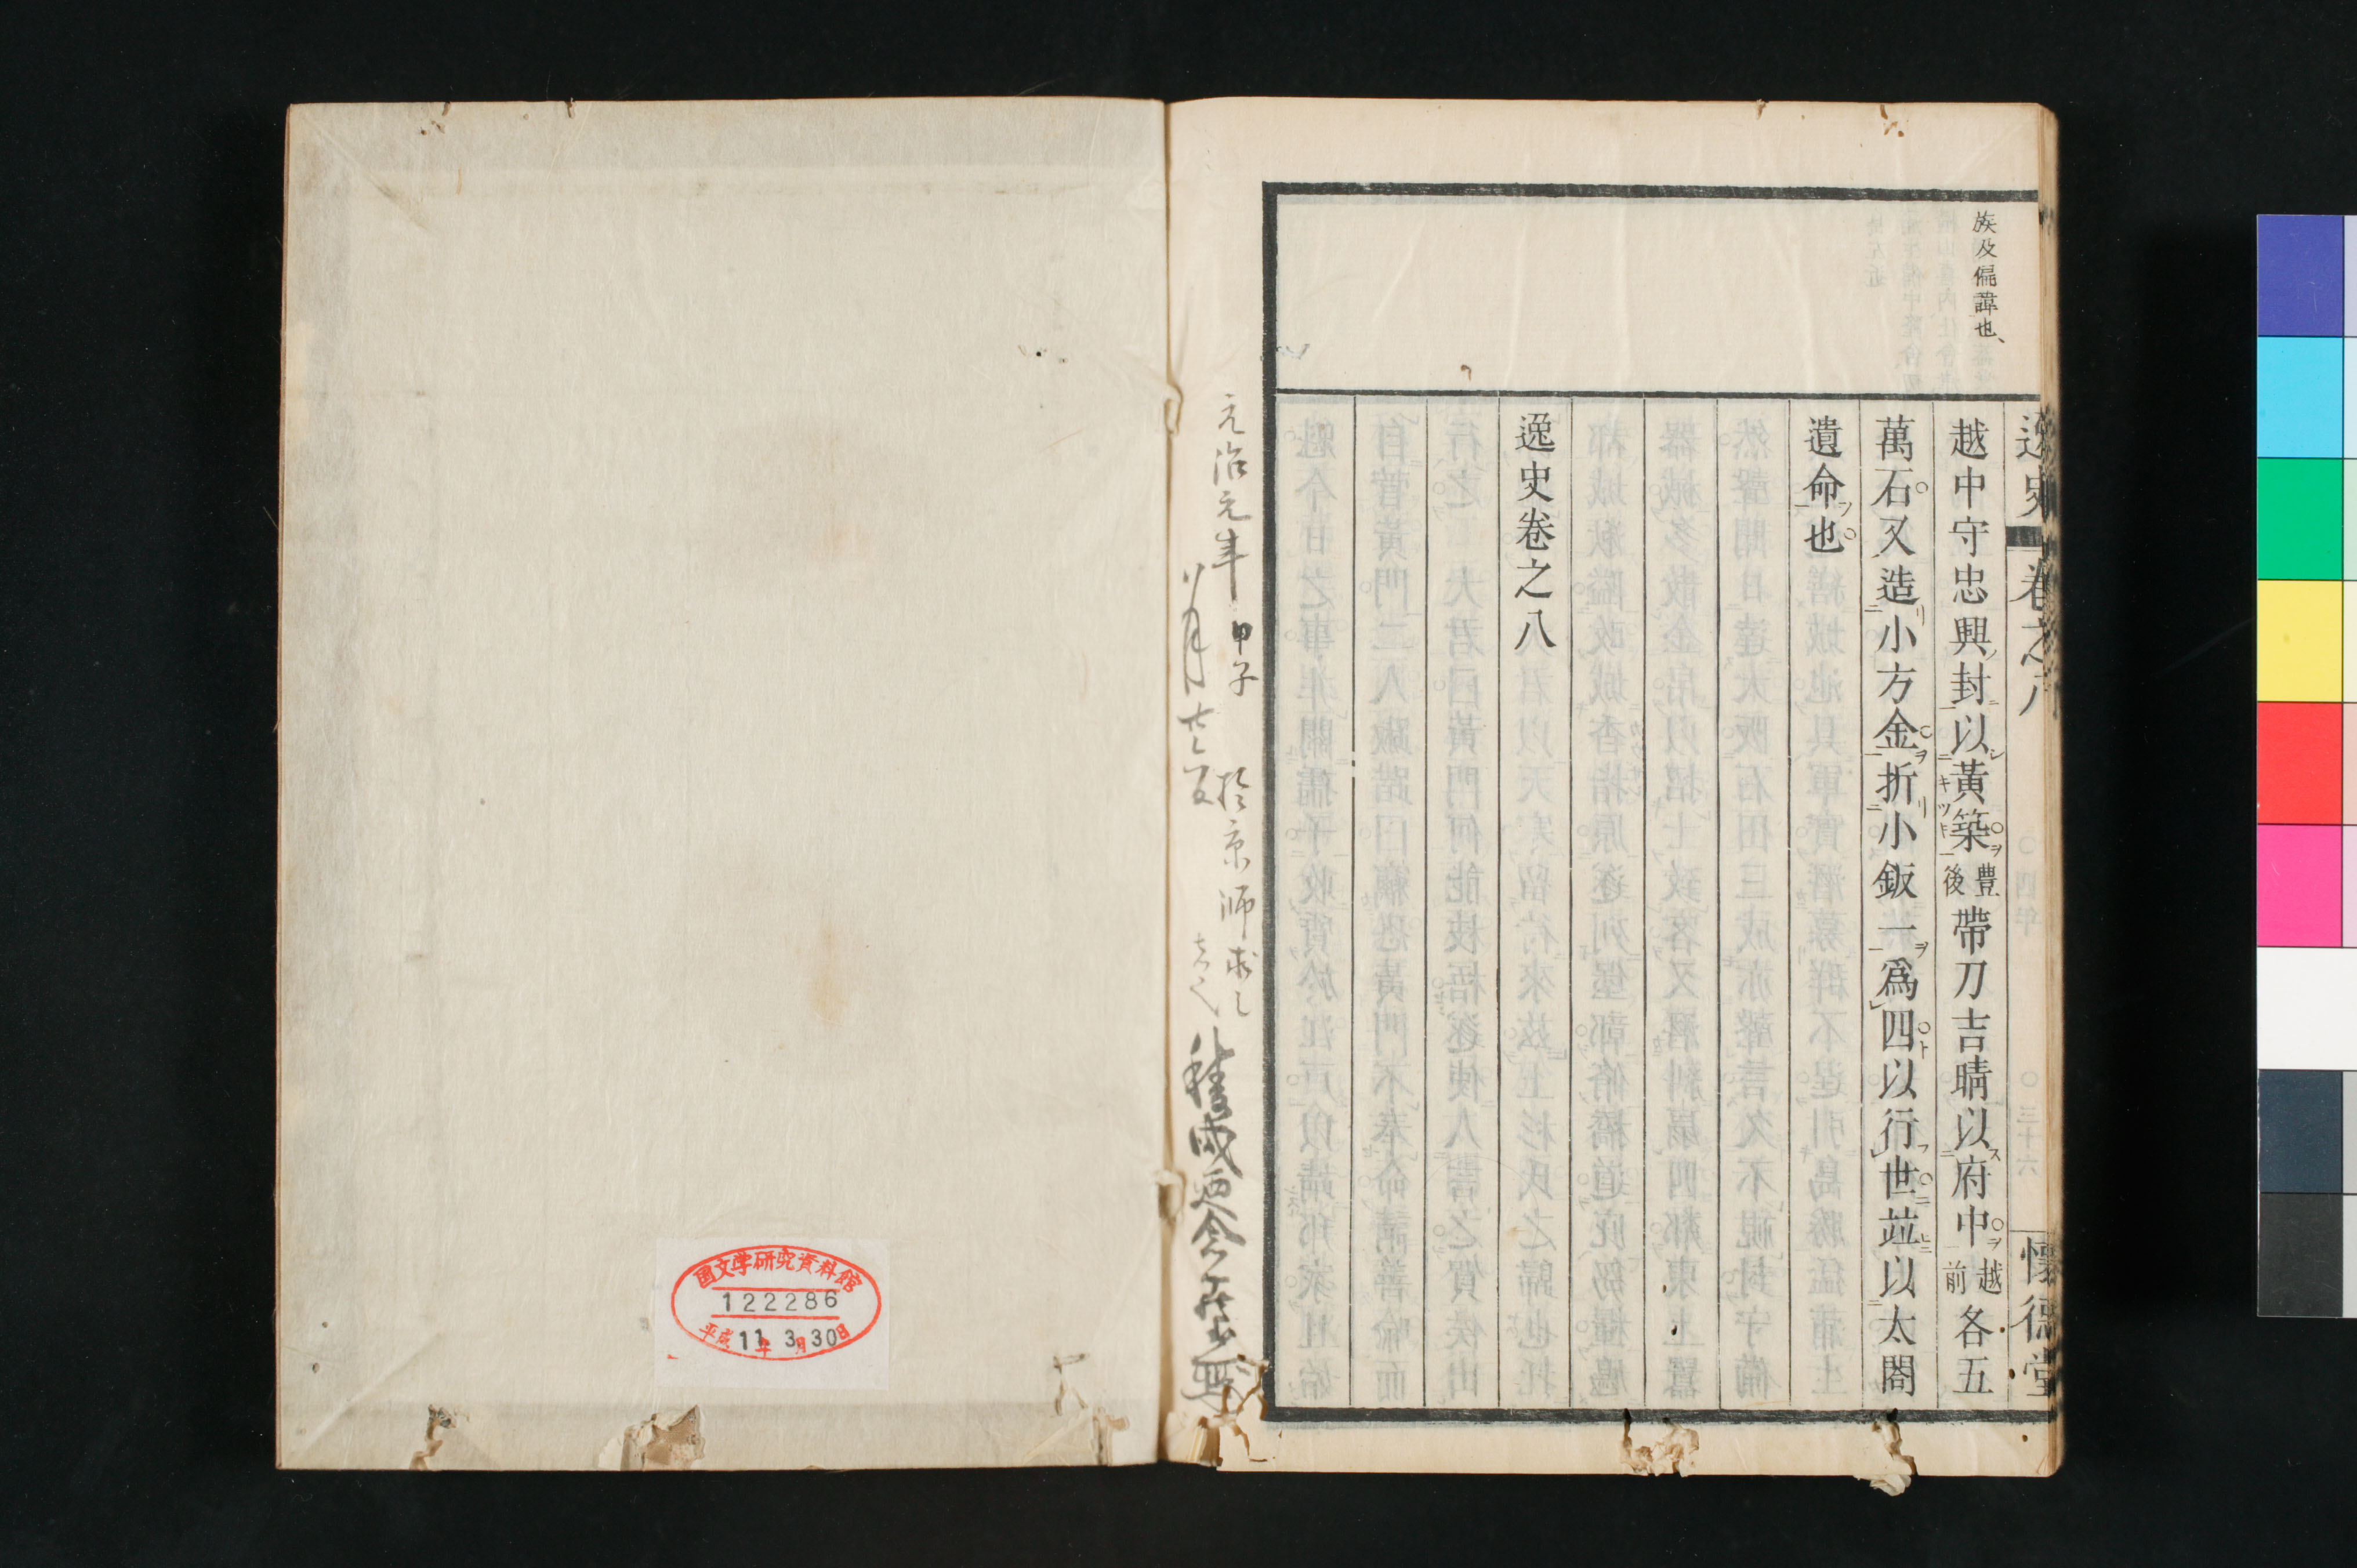 族及偏諱也、
逸史
卷之八
懷德堂
越中守忠興封以黃築豊後帶刀吉晴以府中越前各五
萬石又造小方金折小鈑一爲四以行世並以太閤
遺命也
逸史卷之八
元治元年甲子
八月廿二日
於京師求之
国文学研究資料館
122286
平成11年3月30日